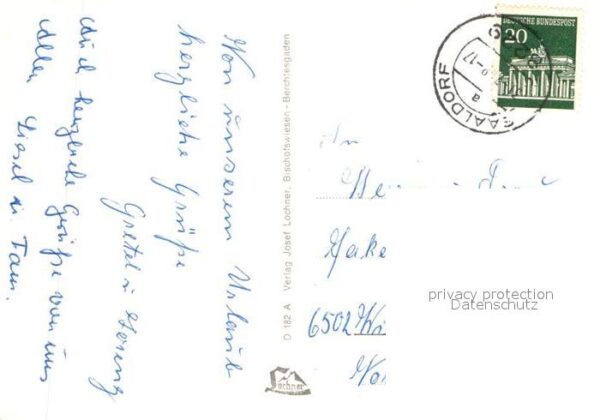 Von unserem Urlaub
herzliche Grüße
Gretel u.
Auch herzliche Grüße von uns
Allen Liesel u. Fam.
D 182 A Verlag Josef Lochner, Bischofswiesen - Berchtesgaden
Lochner
DEUTSCHE BUNDESPOST
20
SAALDORF
a
-17
An
6502
privacy protection
Datenschutz